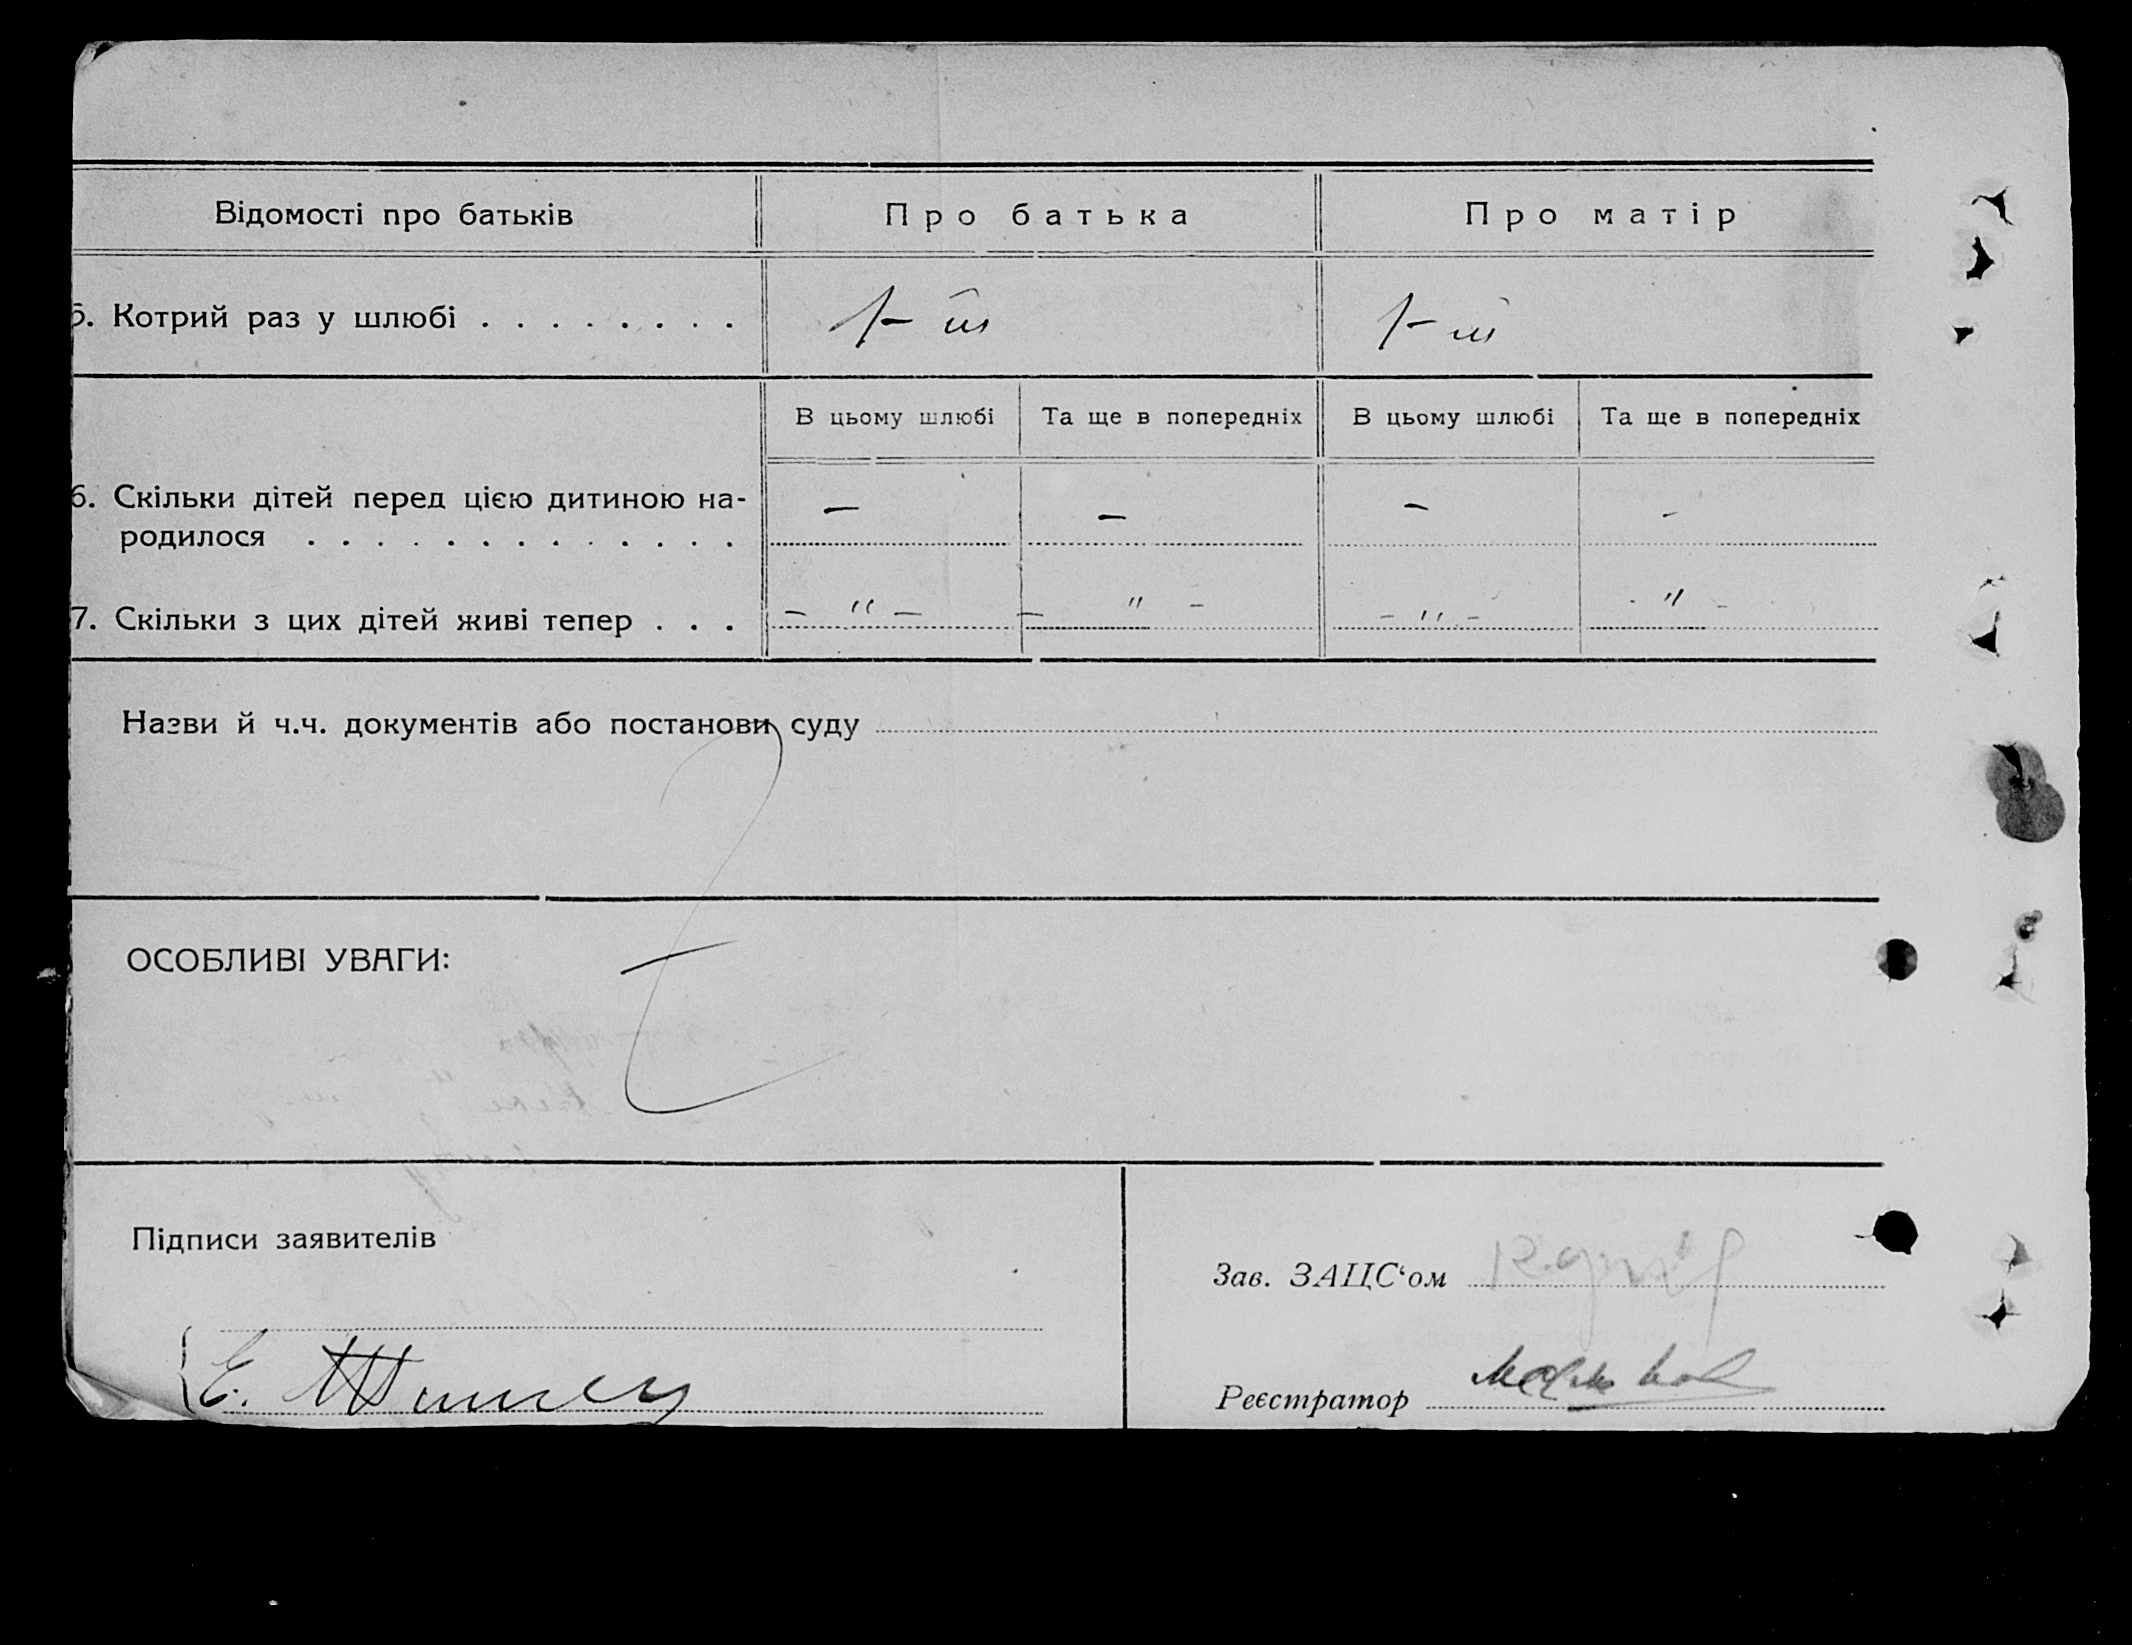 Відомості про батьків Про батька Про матір
5. Котрий раз у шлюбі . . . . . . . . 1-ий 1-ий
В цьому шлюбі Та ще в попередніх В цьому шлюбі Та ще в попередніх
6. Скільки дітей перед цією дитиною на- — — — -
родилося . . . . . . . . . . . . .
7. Скільки з цих дітей живі тепер . . . — " — — " - - " - - " -
Назви й ч.ч. документів або постанови суду
ОСОБЛИВІ УВАГИ:
Підписи заявителів
Зав. ЗАЦС‘ом
Е.
Реєстратор